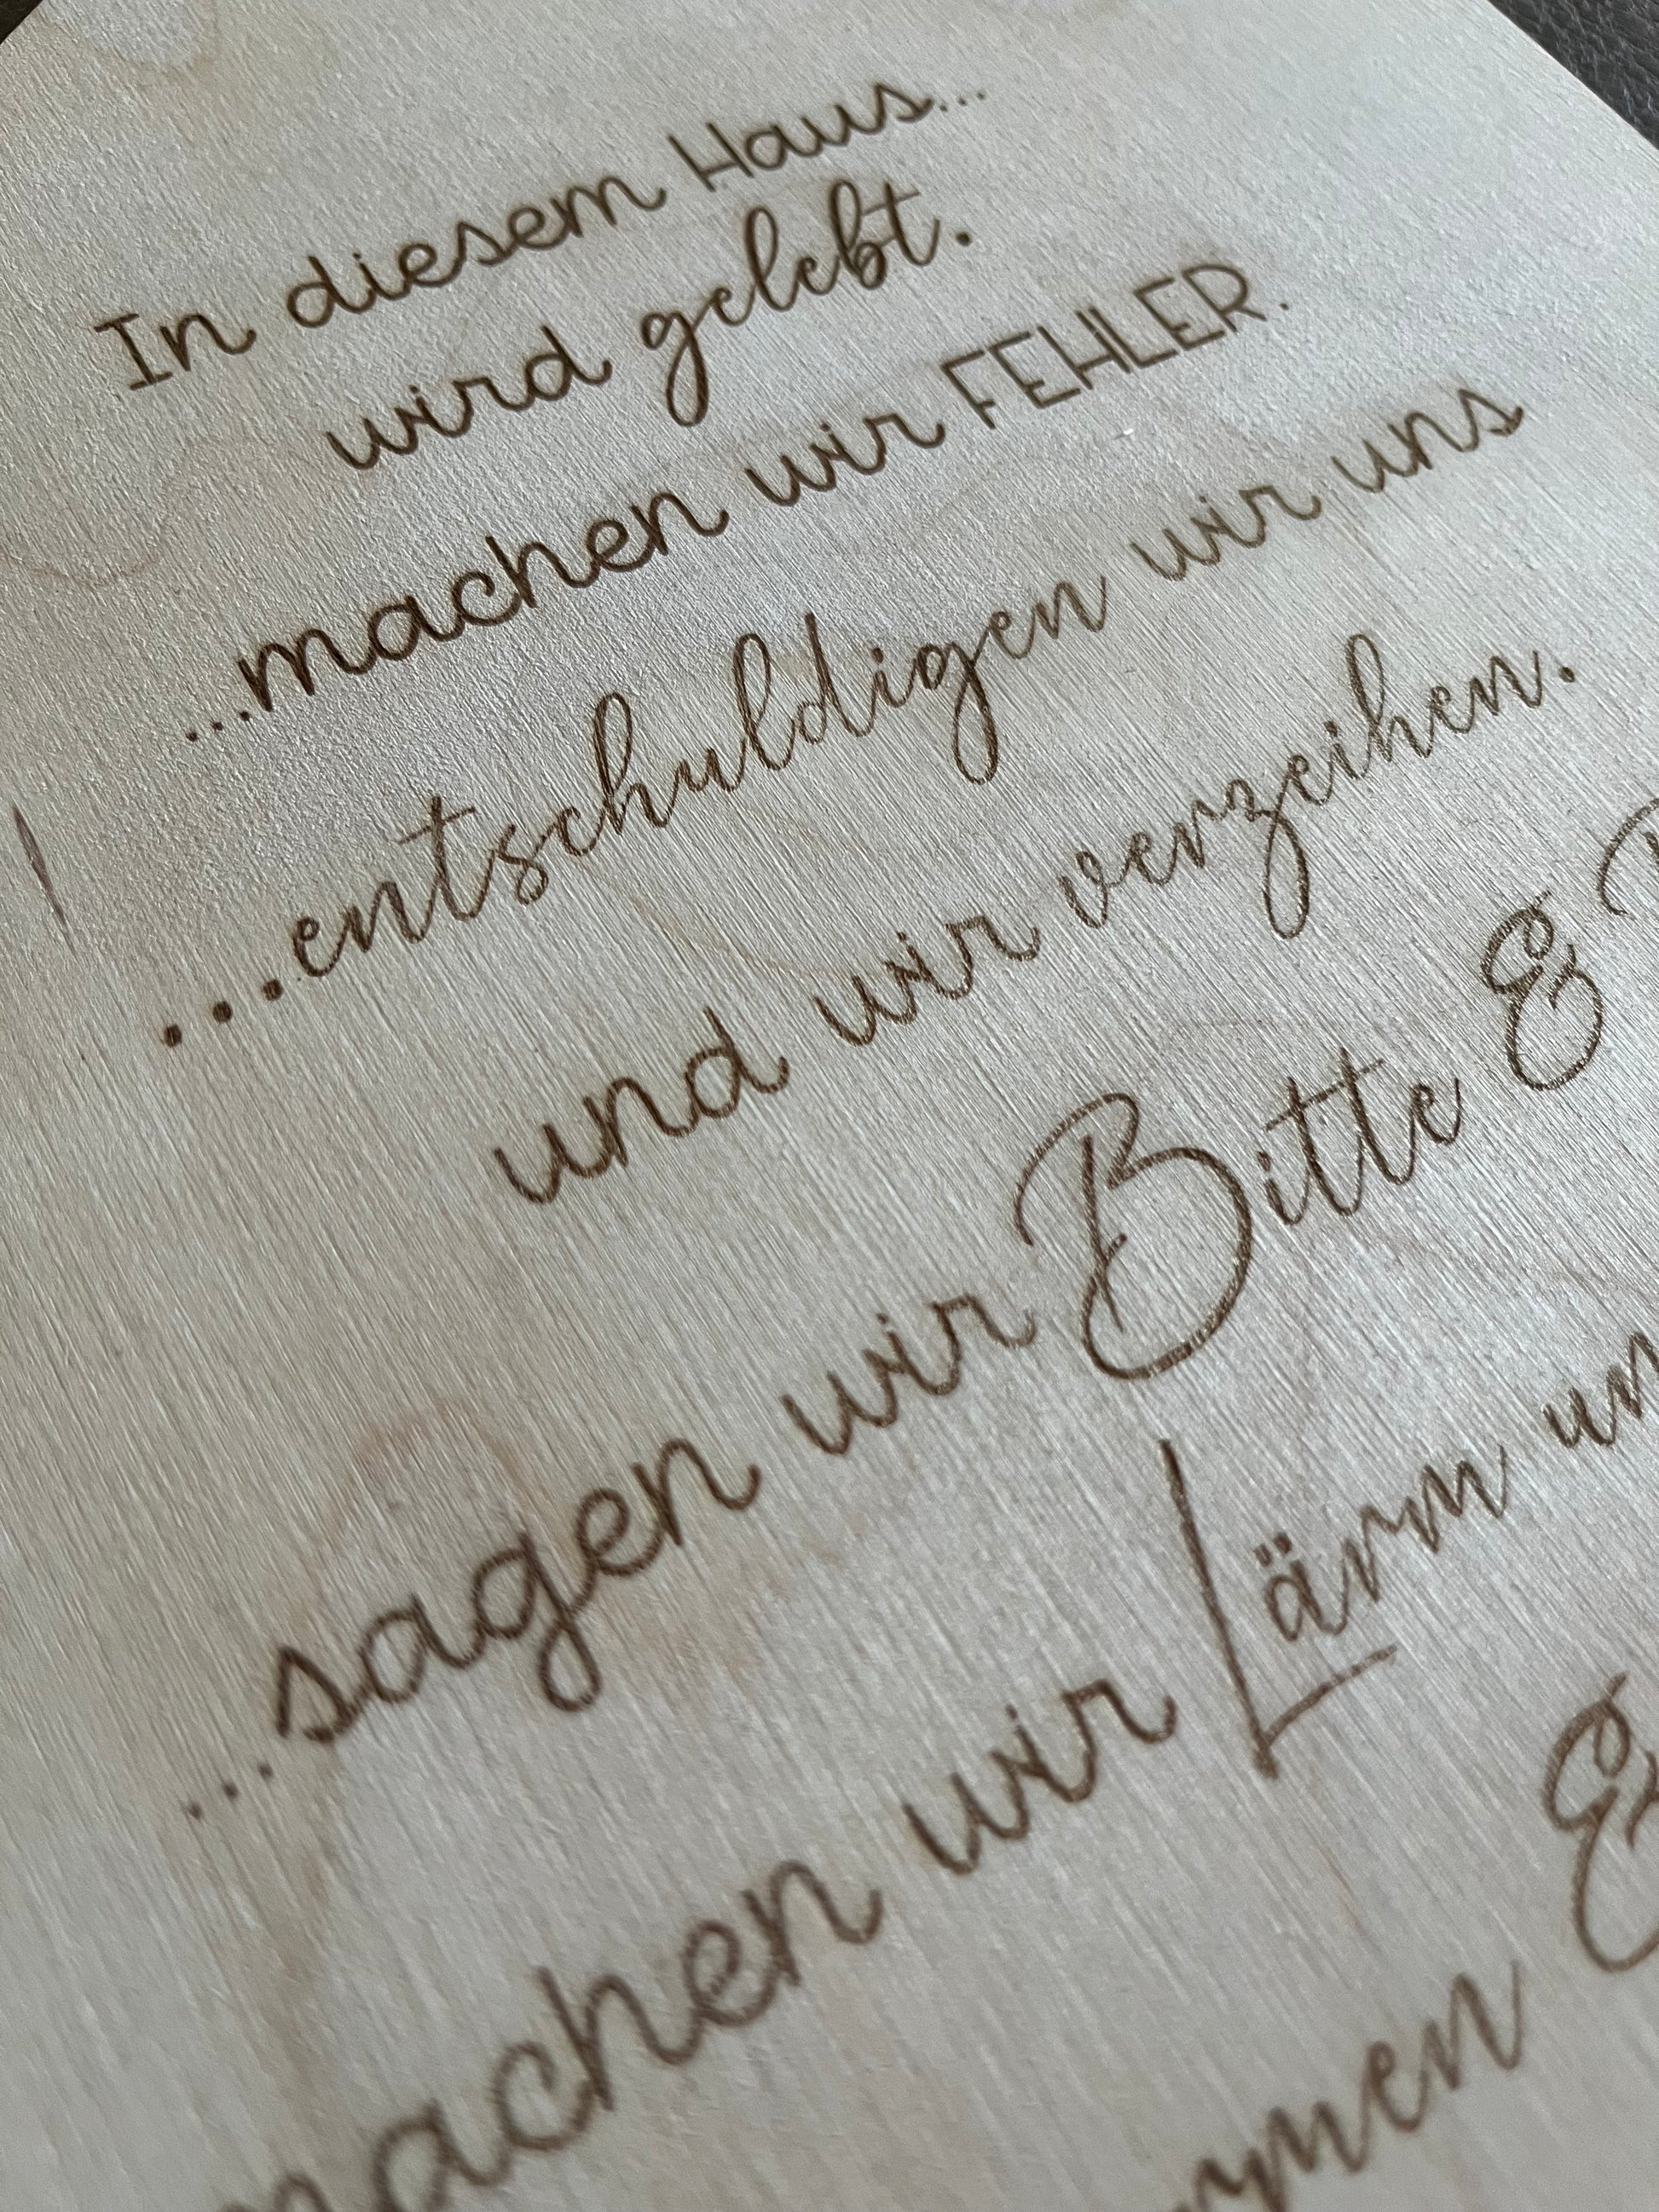 In diesem Haus...
wird gelebt.
...machen wir FEHLER.
...entschuldigen wir uns
und wir verzeihen.
...sagen wir Bitte &
machen wir Lärm
&